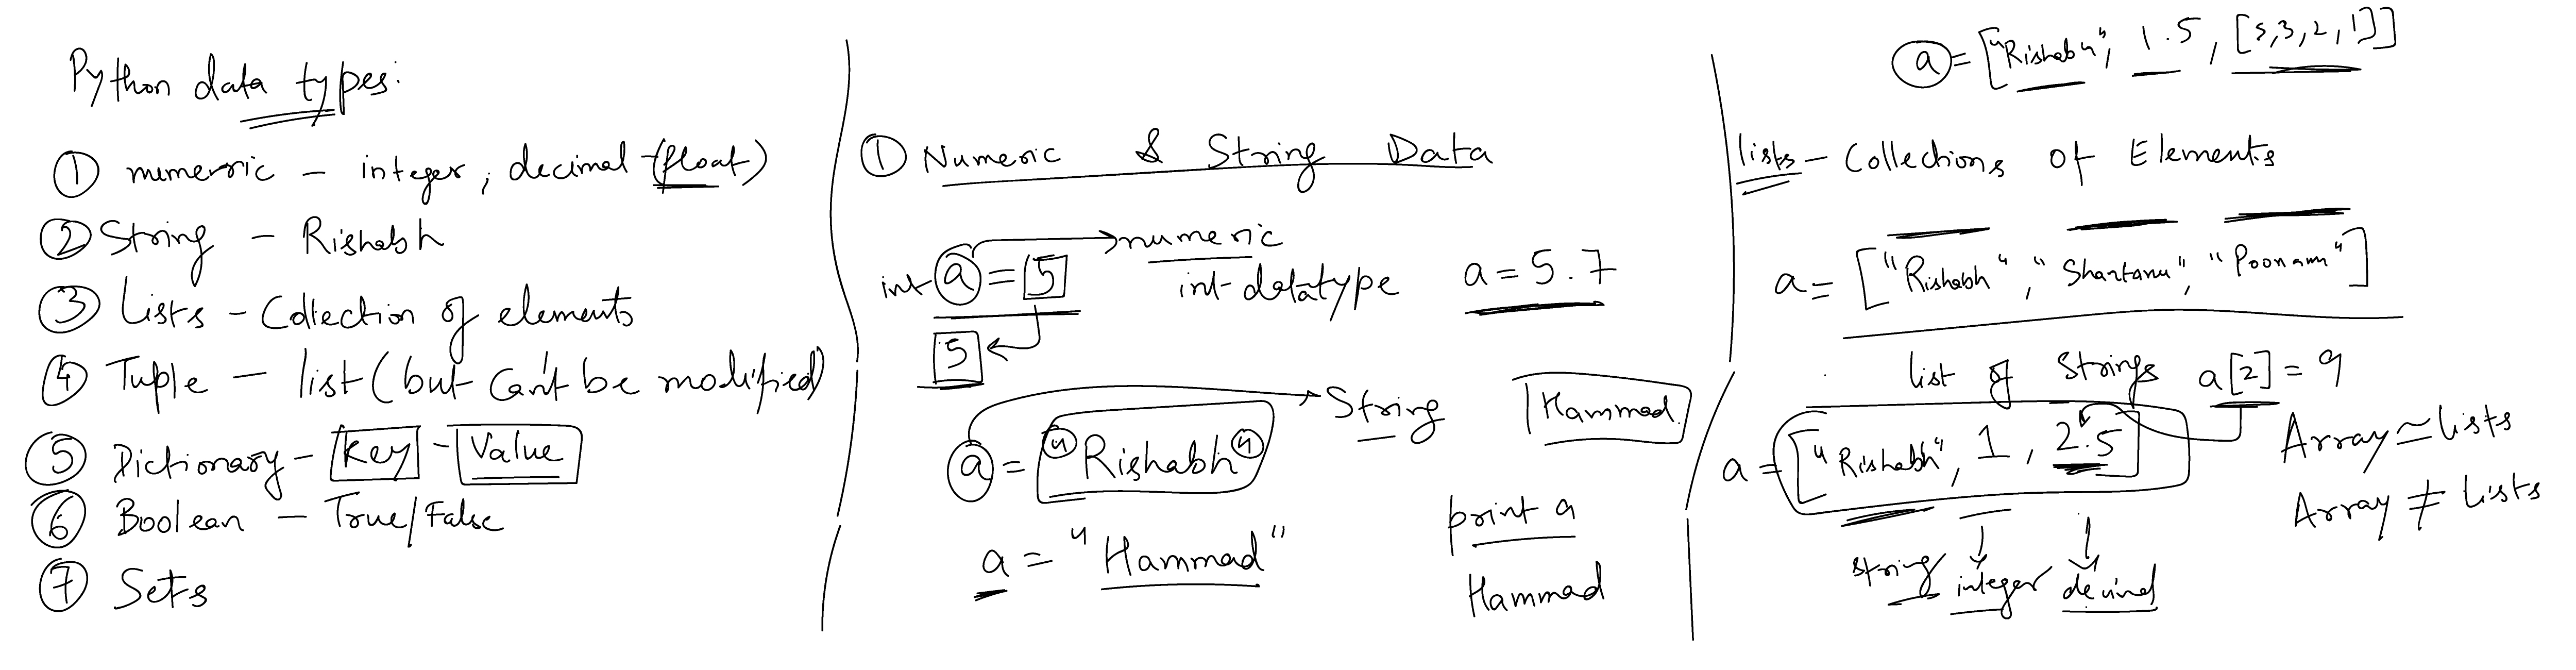 Python data types:
① numeric - integer, decimal (float)
② String - Rishabh
③ Lists - Collection of elements
④ Tuple - list (but can't be modified)
⑤ Dictionary - Key - Value
⑥ Boolean - True/False
⑦ Sets
① Numeric & String Data
numeric
int a = 5
int datatype
a = 5.7
5
String
Hammad
a = "Rishabh"
print a
a = "Hammad"
Hammad
a = ["Rishabh", 1.5, [5,3,2,1]]
lists - Collections of Elements
a = ["Rishabh", "Shantanu", "Poonam"]
list of Strings
a[2] = 9
a = ["Rishabh", 1, 2.5]
Array ≃ lists
Array ≠ lists
string integer decimal